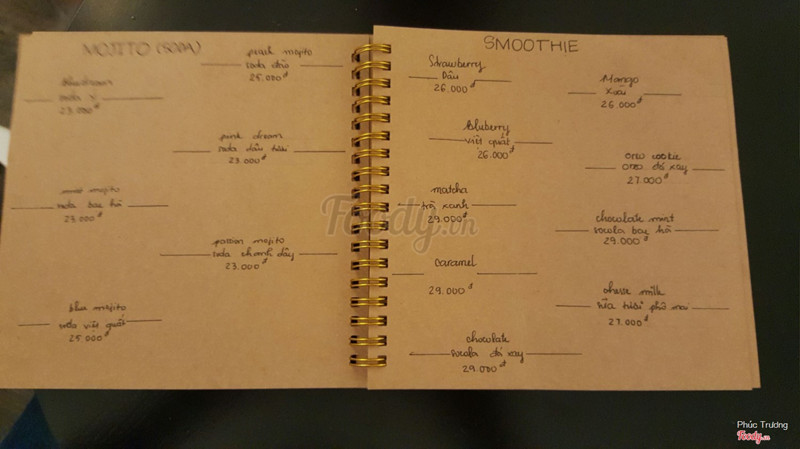 MOJITO (SODA)
peach mojito
soda đào
25.000đ
blue dream
soda
23.000
pink dream
soda dâu tươi
23.000đ
mint mojito
soda bạc hà
23.000đ
passion mojito
soda chanh dây
23.000đ
blue mojito
soda việt quất
25.000đ
SMOOTHIE
Strawberry
Dâu
26.000đ
Mango
Xoài
26.000đ
Bluberry
việt quất
26.000đ
oreo cookie
oreo đá xay
27.000đ
matcha
trà xanh
29.000đ
chocolate mint
socola bạc hà
29.000đ
caramel
29.000đ
chesse milk
sữa tươi phô mai
27.000đ
chocolate
socola đá xay
29.000đ
Foody.vn
Phúc Trương
Foody.vn